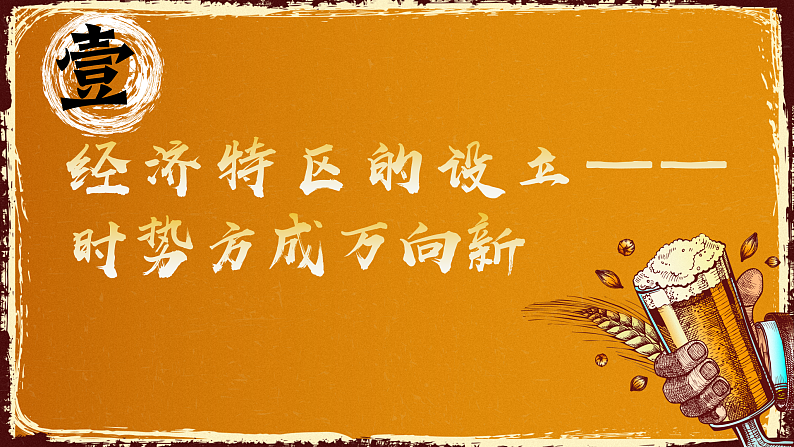 壹
经济特区的设立——
时势方成万向新